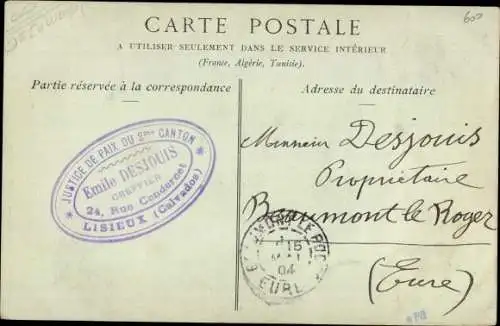 600
CARTE POSTALE
A UTILISER SEULEMENT DANS LE SERVICE INTÉRIEUR
(France, Algérie, Tunisie).
Partie réservée à la correspondance
Adresse du destinataire
JUSTICE DE PAIX DU 2me CANTON
Emile DESJOUIS
GREFFIER
24, Rue Condorcet
LISIEUX (Calvados)
Monsieur Desjouis
Propriétaire
Beaumont le Roger
(Eure)
BEAUMONT-LE-ROGER
15
MAI
04
EURE